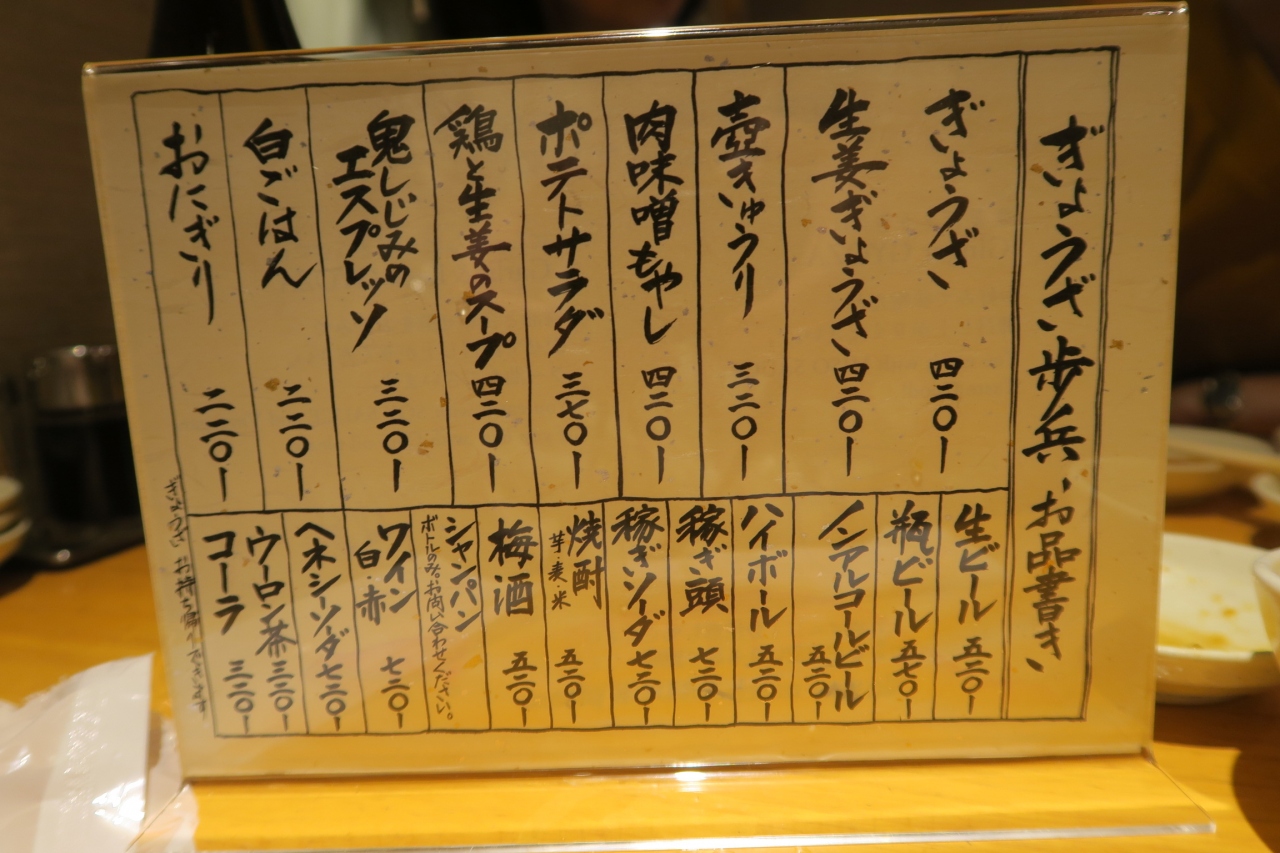 ぎょうざ歩兵 お品書き
ぎょうざ 四二〇ー
生姜ぎょうざ 四二〇ー
壺きゅうり 三二〇ー
肉味噌もやし 四二〇ー
ポテトサラダ 三七〇ー
鶏と生姜のスープ 四二〇ー
鬼しじみの
エスプレッソ 三二〇ー
白ごはん 二二〇ー
おにぎり 二二〇ー
生ビール 五二〇ー
瓶ビール 五七〇ー
ノンアルコールビール 五二〇ー
ハイボール 五二〇ー
稼ぎ頭 七二〇ー
稼ぎソーダ 七二〇ー
焼酎 芋・麦・米 五二〇ー
梅酒 五二〇ー
シャンパン
ボトルのみ。お問い合わせください。
ワイン 白・赤 七二〇ー
ヘネシーソーダ 七二〇ー
ウーロン茶 三二〇ー
コーラ 三二〇ー
ぎょうざ お持ち帰りできます